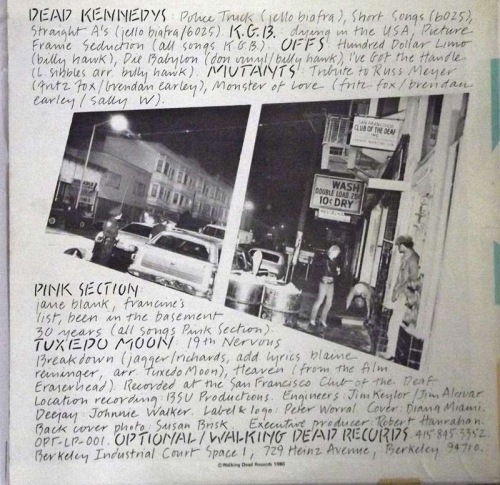 DEAD KENNEDYS: Police Truck (jello biafra), Short Songs (6025),
Straight A's (jello biafra/6025). K.G.B. dying in the USA, Picture
Frame Seduction (all songs K.G.B.). OFFS Hundred Dollar Limo
(billy hawk), Die Babylon (don vinyl/billy hawk), I've Got the Handle
(L. sibbles arr. billy hawk). MUTANTS: Tribute to Russ Meyer
(fritz fox/brendan earley), Monster of Love (fritz fox/brendan
earley/Sally W).
SAN FRANCISCO
CLUB OF THE DEAF
INC.
WASH
DOUBLE LOAD 25¢
10¢ DRY
PINK SECTION:
jane blank, francine's
list, been in the basement
30 years (all songs Pink Section).
TUXEDO MOON: 19th Nervous
Breakdown (jagger/richards, add lyrics blaine
reininger, arr. Tuxedo Moon), Heaven (from the film
Eraserhead). Recorded at the San Francisco Club of the Deaf
Location recording: BSU Productions. Engineers: Jim Keylor/Jim Alcivar.
Deejay: Johnnie Walker. Label & logo: Peter Worral Cover: Diana Miami.
Back cover photo: Susan Brisk. Executive producer: Robert Hanrahan.
OPT-LP-001. OPTIONAL/WALKING DEAD RECORDS 415 845-3352.
Berkeley Industrial Court Space 1, 729 Heinz Avenue, Berkeley 94710.
©Walking Dead Records 1980